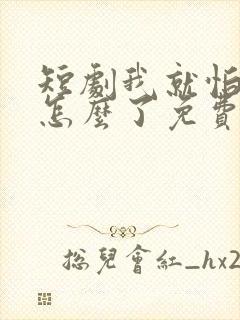 短劇我就怕
怎麼了免費
總兒會紅_hx2